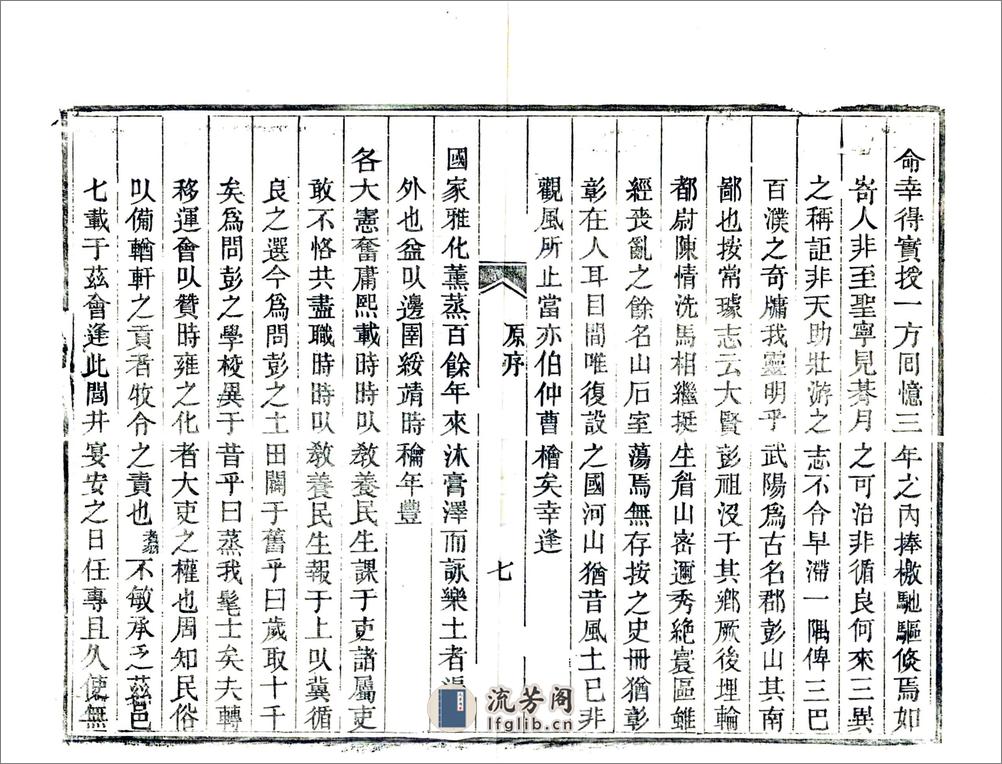 命幸得實授一方囘憶三年之内捧檄馳驅倏焉如
嵜人非至聖寧見朞月之可治非循良何來三異
之稱詎非天助壯游之志不令早滯一隅俾三巴
百濮之奇牗我靈明乎武陽爲古名郡彭山其南
鄙也按常璩志云大賢彭祖沒于其鄉厥後埋輪
都尉陳情洗馬相繼挺生眉山密邇秀絶寰區雖
經喪亂之餘名山石室蕩焉無存按之史冊猶彰
彰在人耳目間唯復設之國河山猶昔風土已非
觀風所止當亦伯仲曹檜矣幸逢
原序
七
國家雅化薰蒸百餘年來沐膏澤而詠樂土者
外也益以邊圉綏靖時稔年豐
各大憲奮庸熙載時時以教養民生課于吏諸屬吏
敢不恪共盡職時時以教養民生報于上以冀循
良之選今爲問彭之土田闢于舊乎曰歲取十千
矣爲問彭之學校異于昔乎曰蒸我髦士矣夫轉
移運會以贊時雍之化者大吏之權也周知民俗
以備輶軒之貢者牧令之責也不敏承乏茲邑
七載于茲會逢此閭井宴安之日任專且久使無
流芳阁
lfglib.cn